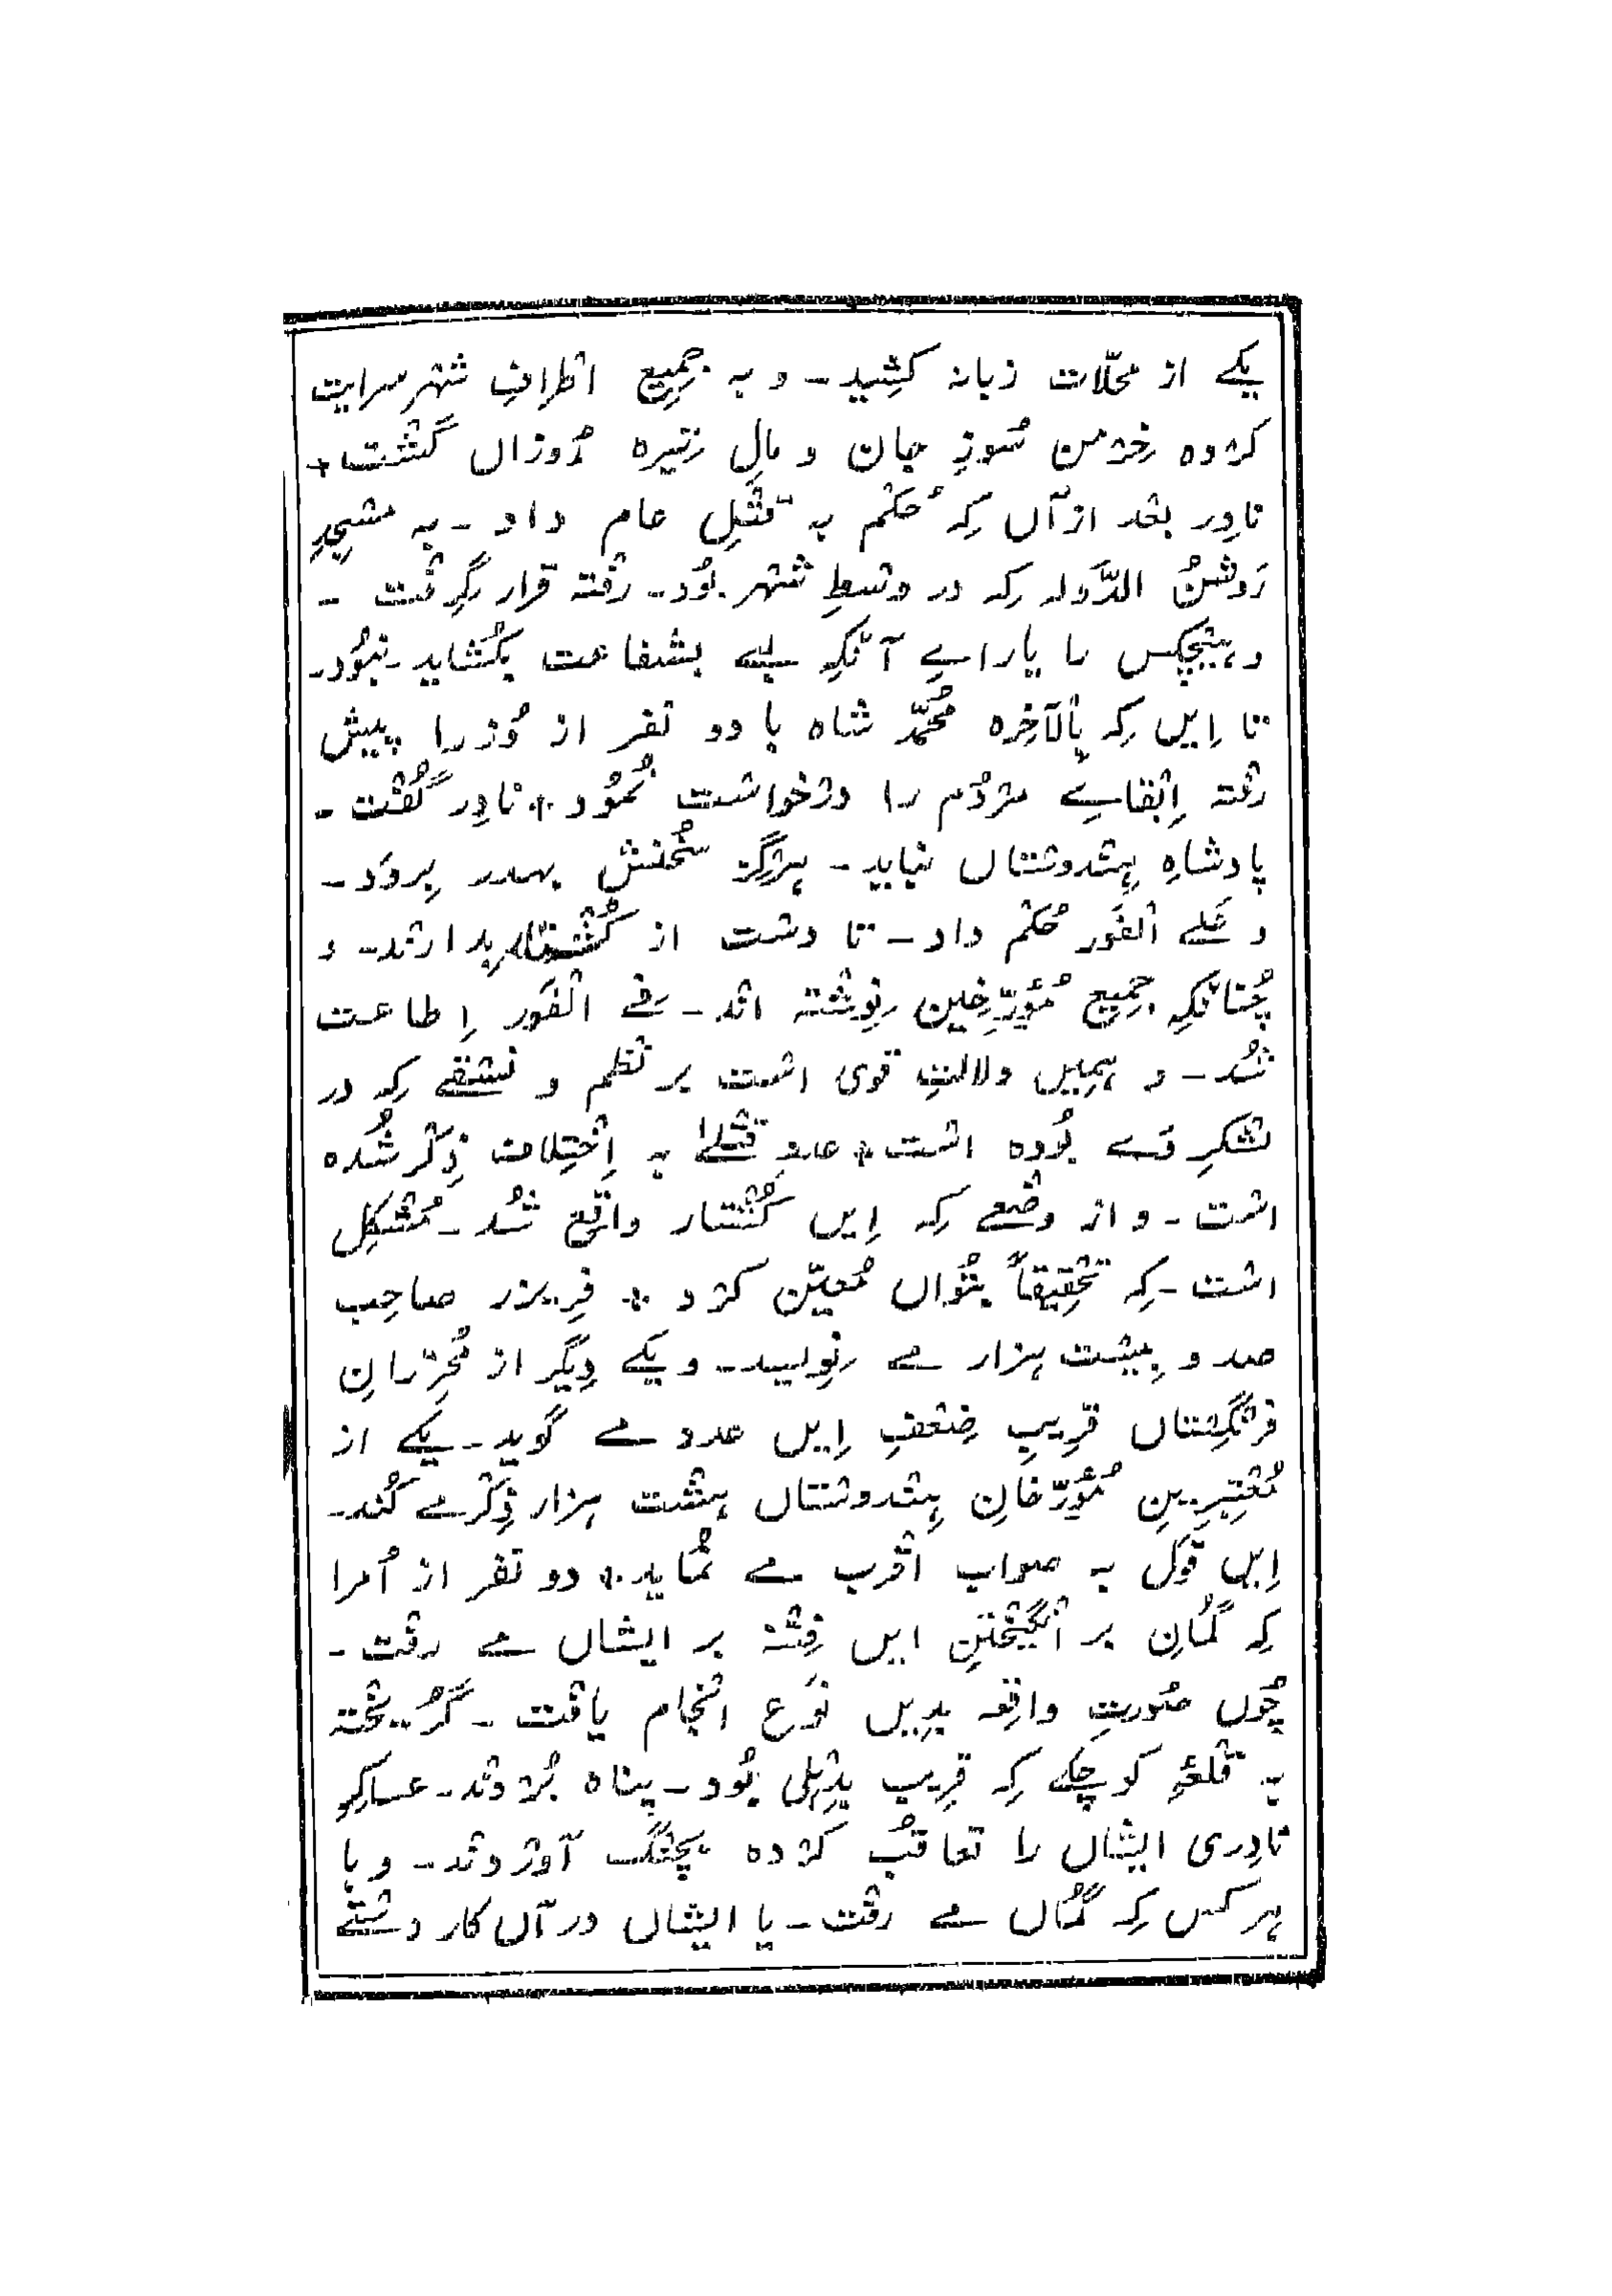 یکے از محلّات زبانہ کشِید ۔ و بہ جمِیعِ اطرافِ شہر سرایت
کرْدہ خِرْمن سُوزِ جان و مالِ تِیرہ رُوزاں گشْت +
نادِر بعْد از آں کِہ حُکْم بہ قتْلِ عام داد ۔ بہ مسْجِدِ
رَوشنُ الدَّولہ کِہ در وسْطِ شہْر بُود ۔ رفْتہ قرار گِرِفْت ۔
و ہیْچکس را یاراے آنْکِہ لبے بشفاعت بکُشاید ۔ نبُود ۔
تا اِیں کِہ بِالآخِرہ مُحمّد شاہ با دو نفر از وُزرا پیش
رفْتہ اِبْقاے مرْدُم را درْخواسْت نمُود + نادِر گُفْت ۔
پادشاہِ ہِنْدوسْتاں نیاید ۔ ہرْگِز سُخنش بہدر برود ۔
و علے الْفَور حُکْم داد ۔ تا دسْت از کُشْتار بدارنْد ۔ و
چُنانْکِہ جمِیعِ مُؤرِّخِین نِوِشْتہ انْد ۔ فے الْفَور اِطاعت
شُد ۔ و ہمِیں دلالتِ قوی اسْت بر نظْم و نسقے کِہ در
لشْکرِ وَے بُودہ اسْت + عددِ قتْلےٰ بہ اِخْتِلاف ذِکْر شُدہ
اسْت ۔ و از وضْعے کِہ اِیں کُشْتار واقِع شُد ۔ مُشْکِل
اسْت ۔ کِہ تحْقِیقاً بتُواں مُعیّن کرْد + فِریزر صاحِب
صد و بِیسْت ہزار مے نِوِیسد ۔ و یکے دِیگر از مُحرِّرانِ
فرنْگِسْتاں قرِیبِ ضِعْفِ اِیں عدد مے گوید ۔ یکے از
مُعْتبِرینِ مُؤرِّخانِ ہِنْدوسْتاں ہشْت ہزار ذِکْر مے کُند ۔
اِیں قَول بہ صواب اقْرب مے نُماید + دو نفر از اُمرا
کِہ گُمانِ بر انْگیخْتنِ ایں فِتْنہ بر ایشاں مے رفْت ۔
چُوں صُورتِ واقِعہ بدِیں نَوع انْجام یافْت ۔ گُریخْتہ
بہ قلْعۂ کوچکے کِہ قرِیب بدِہْلی بُود ۔ پناہ بُرْدنْد ۔ عساکِرِ
نادِری ایشاں را تعاقُب کرْدہ بچنْگ آوُرْدنْد ۔ و با
ہر کس کِہ گُماں مے رفْت ۔ با ایشاں در آں کار دسْتے